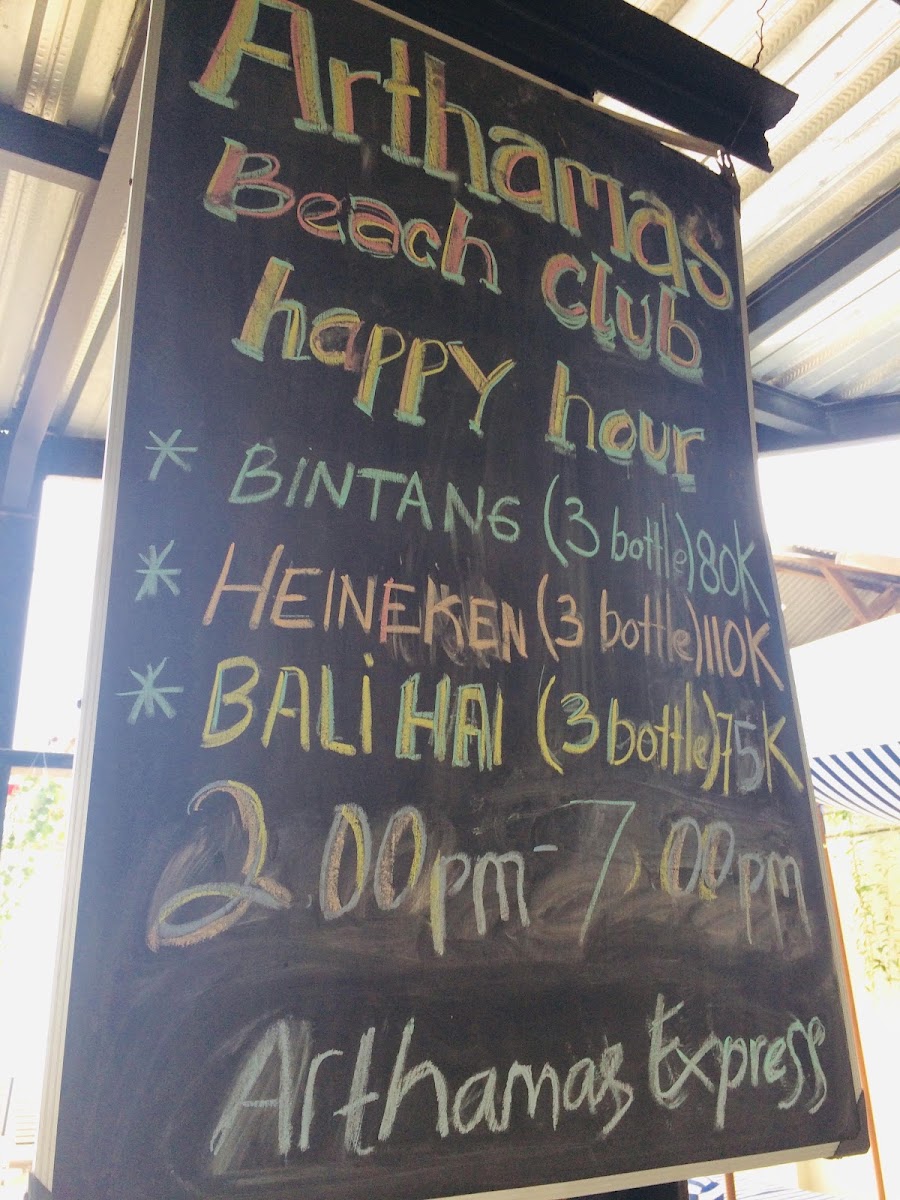 Arthamas
Beach club
happy hour
* BINTANG (3 bottle) 80K
* HEINEKEN (3 bottle) 110K
* BALi HAI (3 bottle) 75K
2.00pm - 7.00pm
Arthamas Express